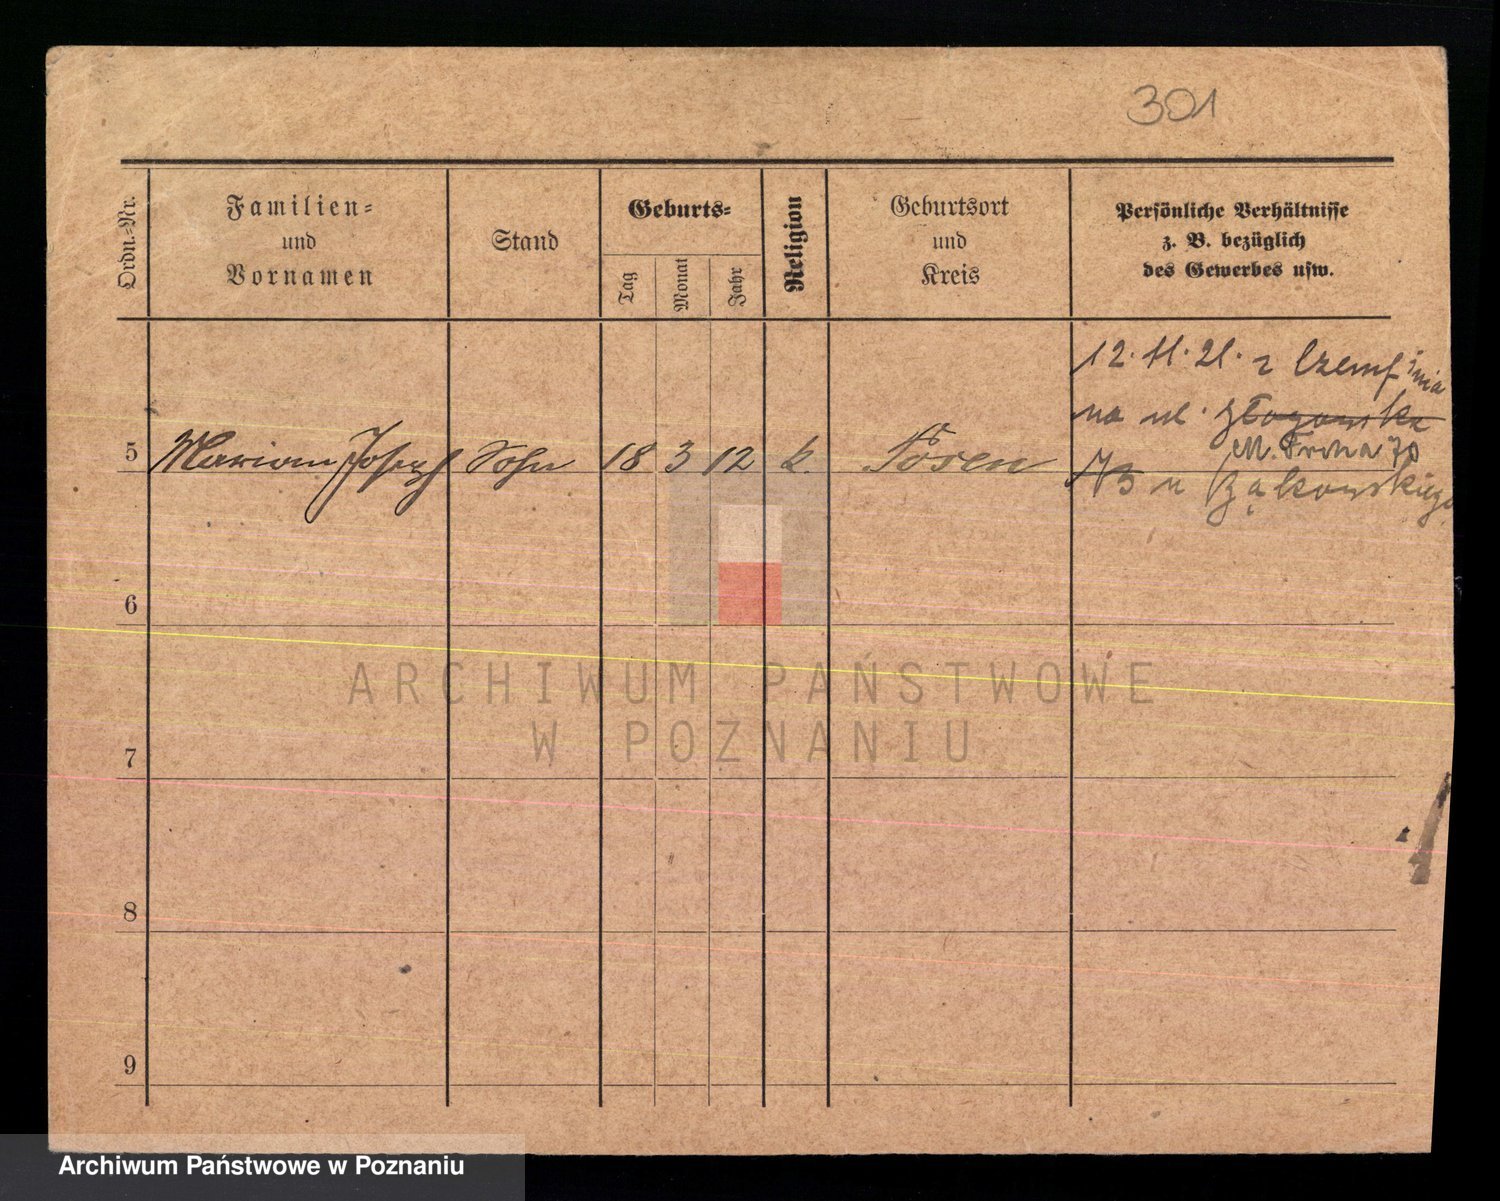 301
Ordn.-Nr.
Familien-
und
Vornamen
Stand
Geburts-
Tag
Monat
Jahr
Religion
Geburtsort
und
Kreis
Persönliche Verhältnisse
z. B. bezüglich
des Gewerbes usw.
12. 11. 21. z Czempinia
na ul. Głogowska
5 Marian Josef Sohn 18 3 12 k. Posen
M. Focha 70
u Bąkowskiego
6
7
8
9
ARCHIWUM PAŃSTWOWE
W POZNANIU
Archiwum Państwowe w Poznaniu